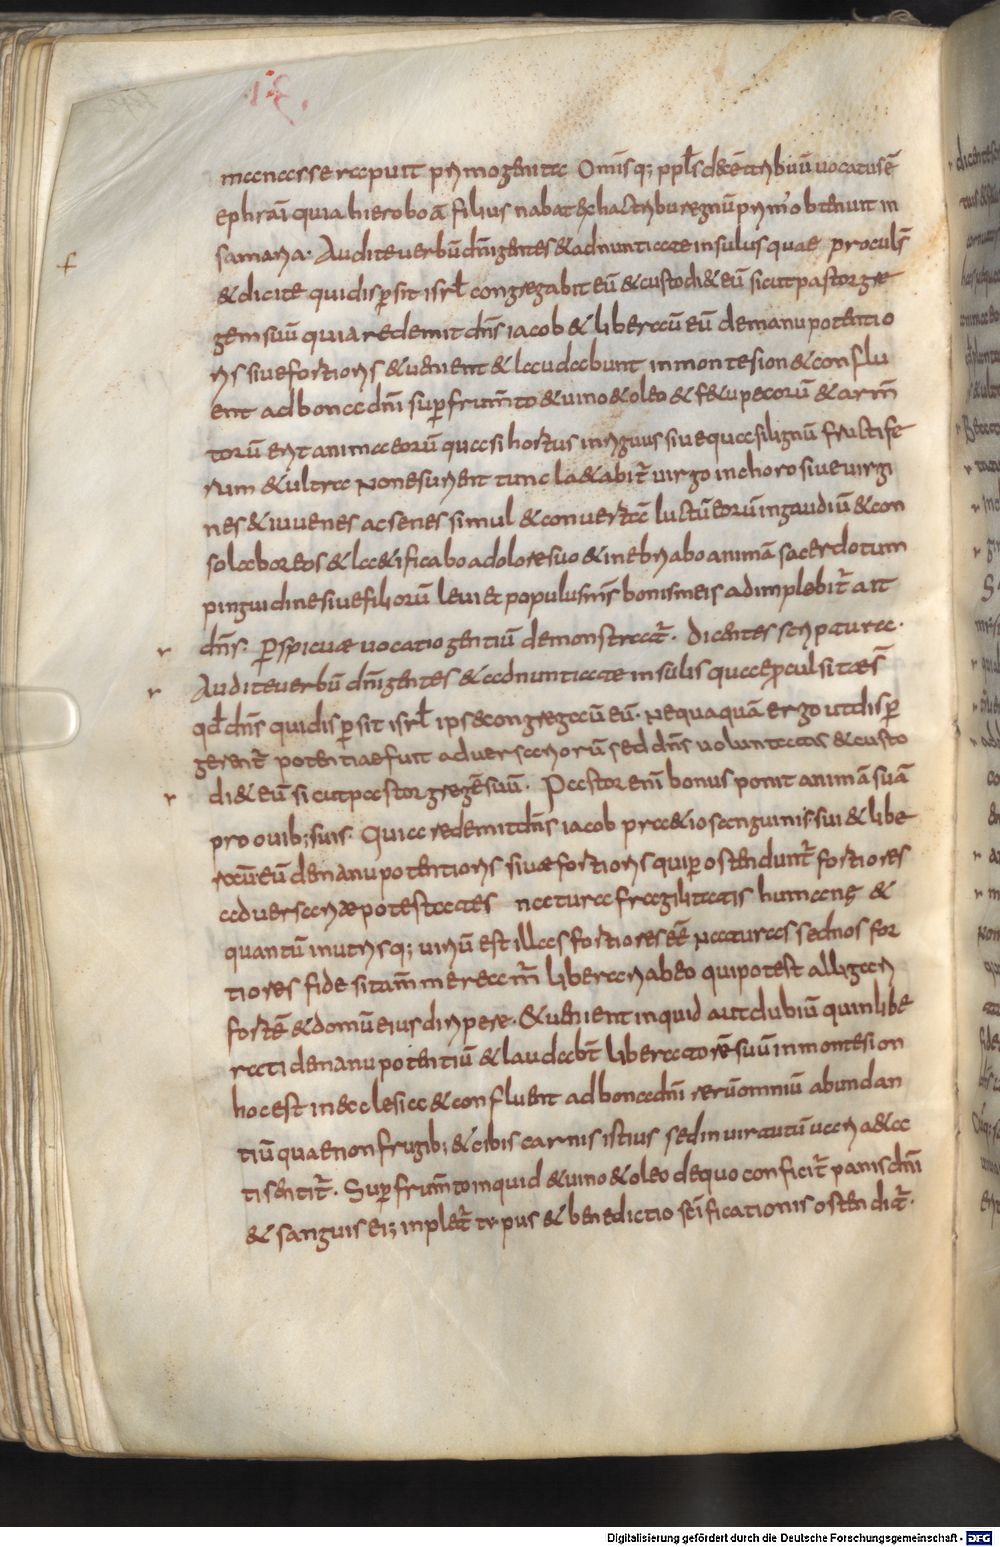 manasse rapuit primogenita Omisq; ppls de&e tribuū uocatus ē
ephraī quia hieroboā filius nabat & hac tribu regnū primo obtenuit in
samaria. Audite uerbū dñi gentes & adnuntiate insulis quae procul s̄
& dicite qui dispsit isrl congregabit eū & custodi& eū sicut pastor gre
gem suū quia redemit dn̄s iacob & liberauit eū de manu potentio
ris siue fortioris & uenient & laudabunt in monte sion & conflu
ent ad bona dn̄i sup frum̄to & uino & oleo & f&u pecorū & arm̄
torū erit anima eorū quasi hortus inriguus siue quasi lignū fructife
rum & ultra non esurient tunc la&abit̄ uirgo in choro siue uirgi
nes & iuuenes ac senes simul & conuertā luctū eorū in gaudiū & con
solabor eos & la&ificabo a dolore suo & inebriabo animā sacerdotum
pinguidine siue filiorū leui et populus m̄s bonis meis adimplebit̄ ait
dn̄s. Pspicuae uocatio gentiū demonstrat̄. Dicentes scriptura.
Audite uerbū dn̄i gentes & adnuntiate insulis quae procul sitae s̄
qd̄ dn̄s qui dispsit isrl ipse congregauit eū. Nequaquā ergo ut disp
gerent̄ potentiae fuit aduersariorū sed dn̄s uoluntatis & custo
di& eū sicut pastor gregē suū. Pastor enī bonus ponit animā suā
pro ouib; suis. Quia redemit dn̄s iacob pra&io sanguinis sui & libe
rauit eū de manu potentioris siuae fortioris qui p ostendunt̄ fortiores
aduersariae potestates naturae fragilitatis humanę &
quantū in utrisq; uirium est illas fortiores eē naturas sed nos for
tiores fide si tam̄ mereamr̄ liberari ab eo qui potest alligari
fortē & domū eius diripere. & uenient inquid aut dubiū quin libe
rati de manu potentiū & laudabt̄ liberatorē suū in monte sion
hoc est in ecclesia & confluent ad bona dn̄i rerū omniū abundan
tiū quae non frugib; & cibis carnis istius sed in uirtutū uaria&a
tis entit̄. Sup frum̄to inquid & uino & oleo de quo conficit̄ panis dn̄i
& sanguis ei; inplet̄ typus & benedictio sc̄ificationis ostendit̄.
Digitalisierung gefördert durch die Deutsche Forschungsgemeinschaft - DFG